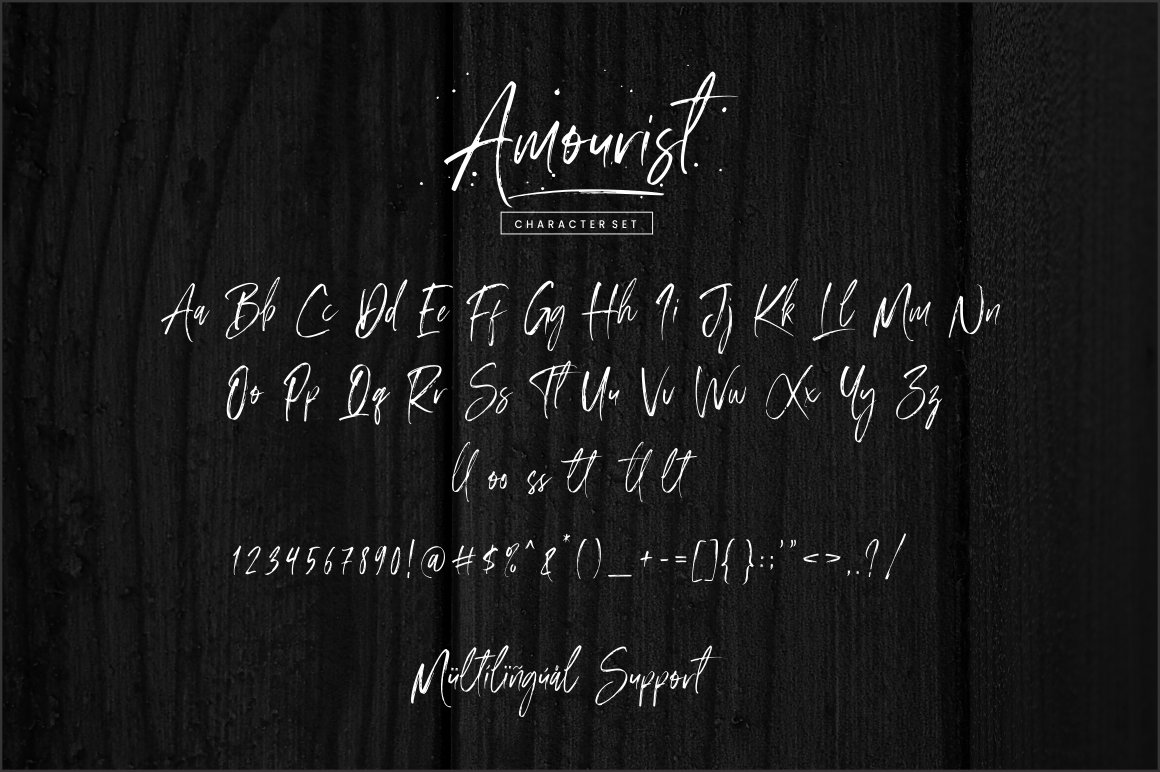 Amourist
CHARACTER SET
Aa Bb Cc Dd Ee Ff Gg Hh Ii Jj Kk Ll Mm Nn
Oo Pp Qq Rr Ss Tt Uu Vv Ww Xx Yy Zz
ll oo ss tt tl lt
1234567890!@#$%^&*()_+-=[]{}:;'"<>,.?/
Mültilïñgúål Support